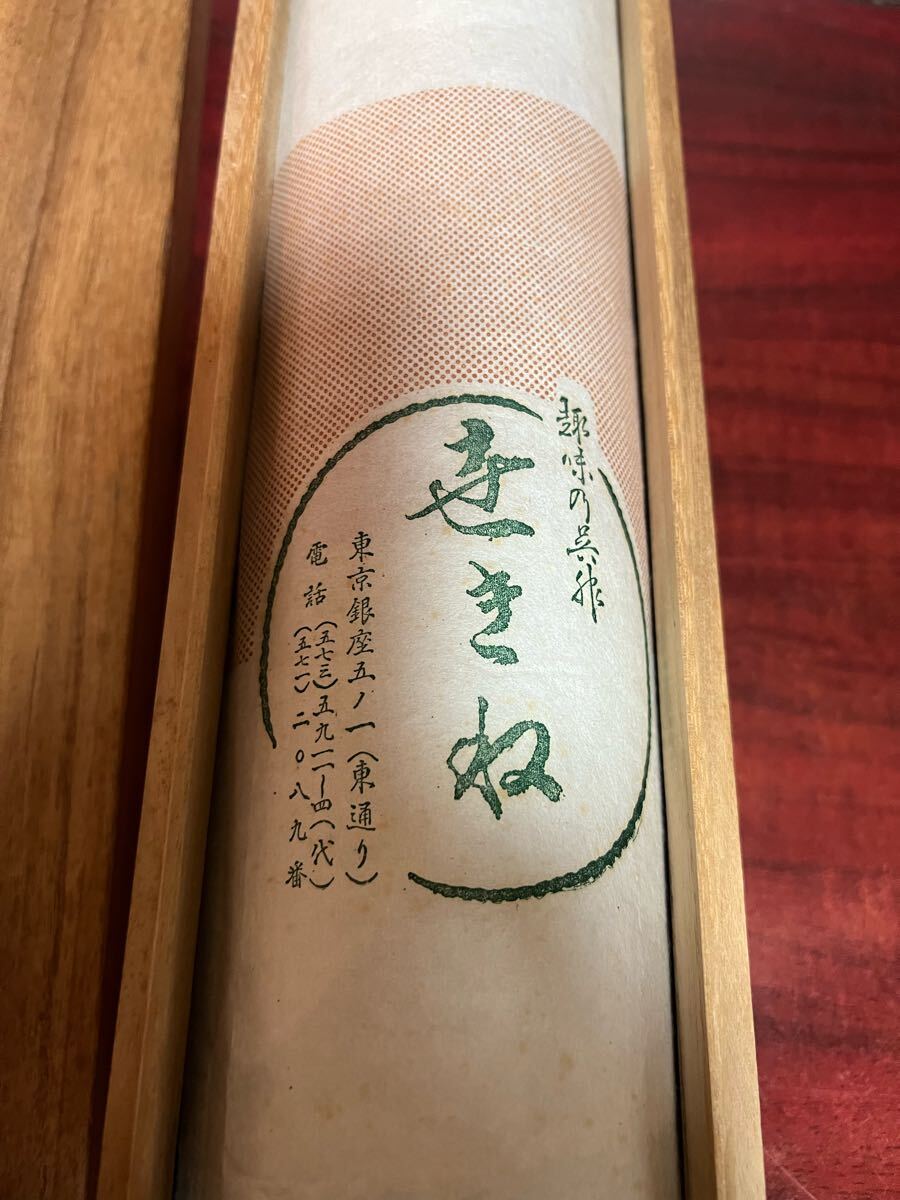 趣味の呉服
せきね
東京銀座五ノ一(東通り)
電話(五七三)五九一一―四(代)
(五七一)二〇八九番